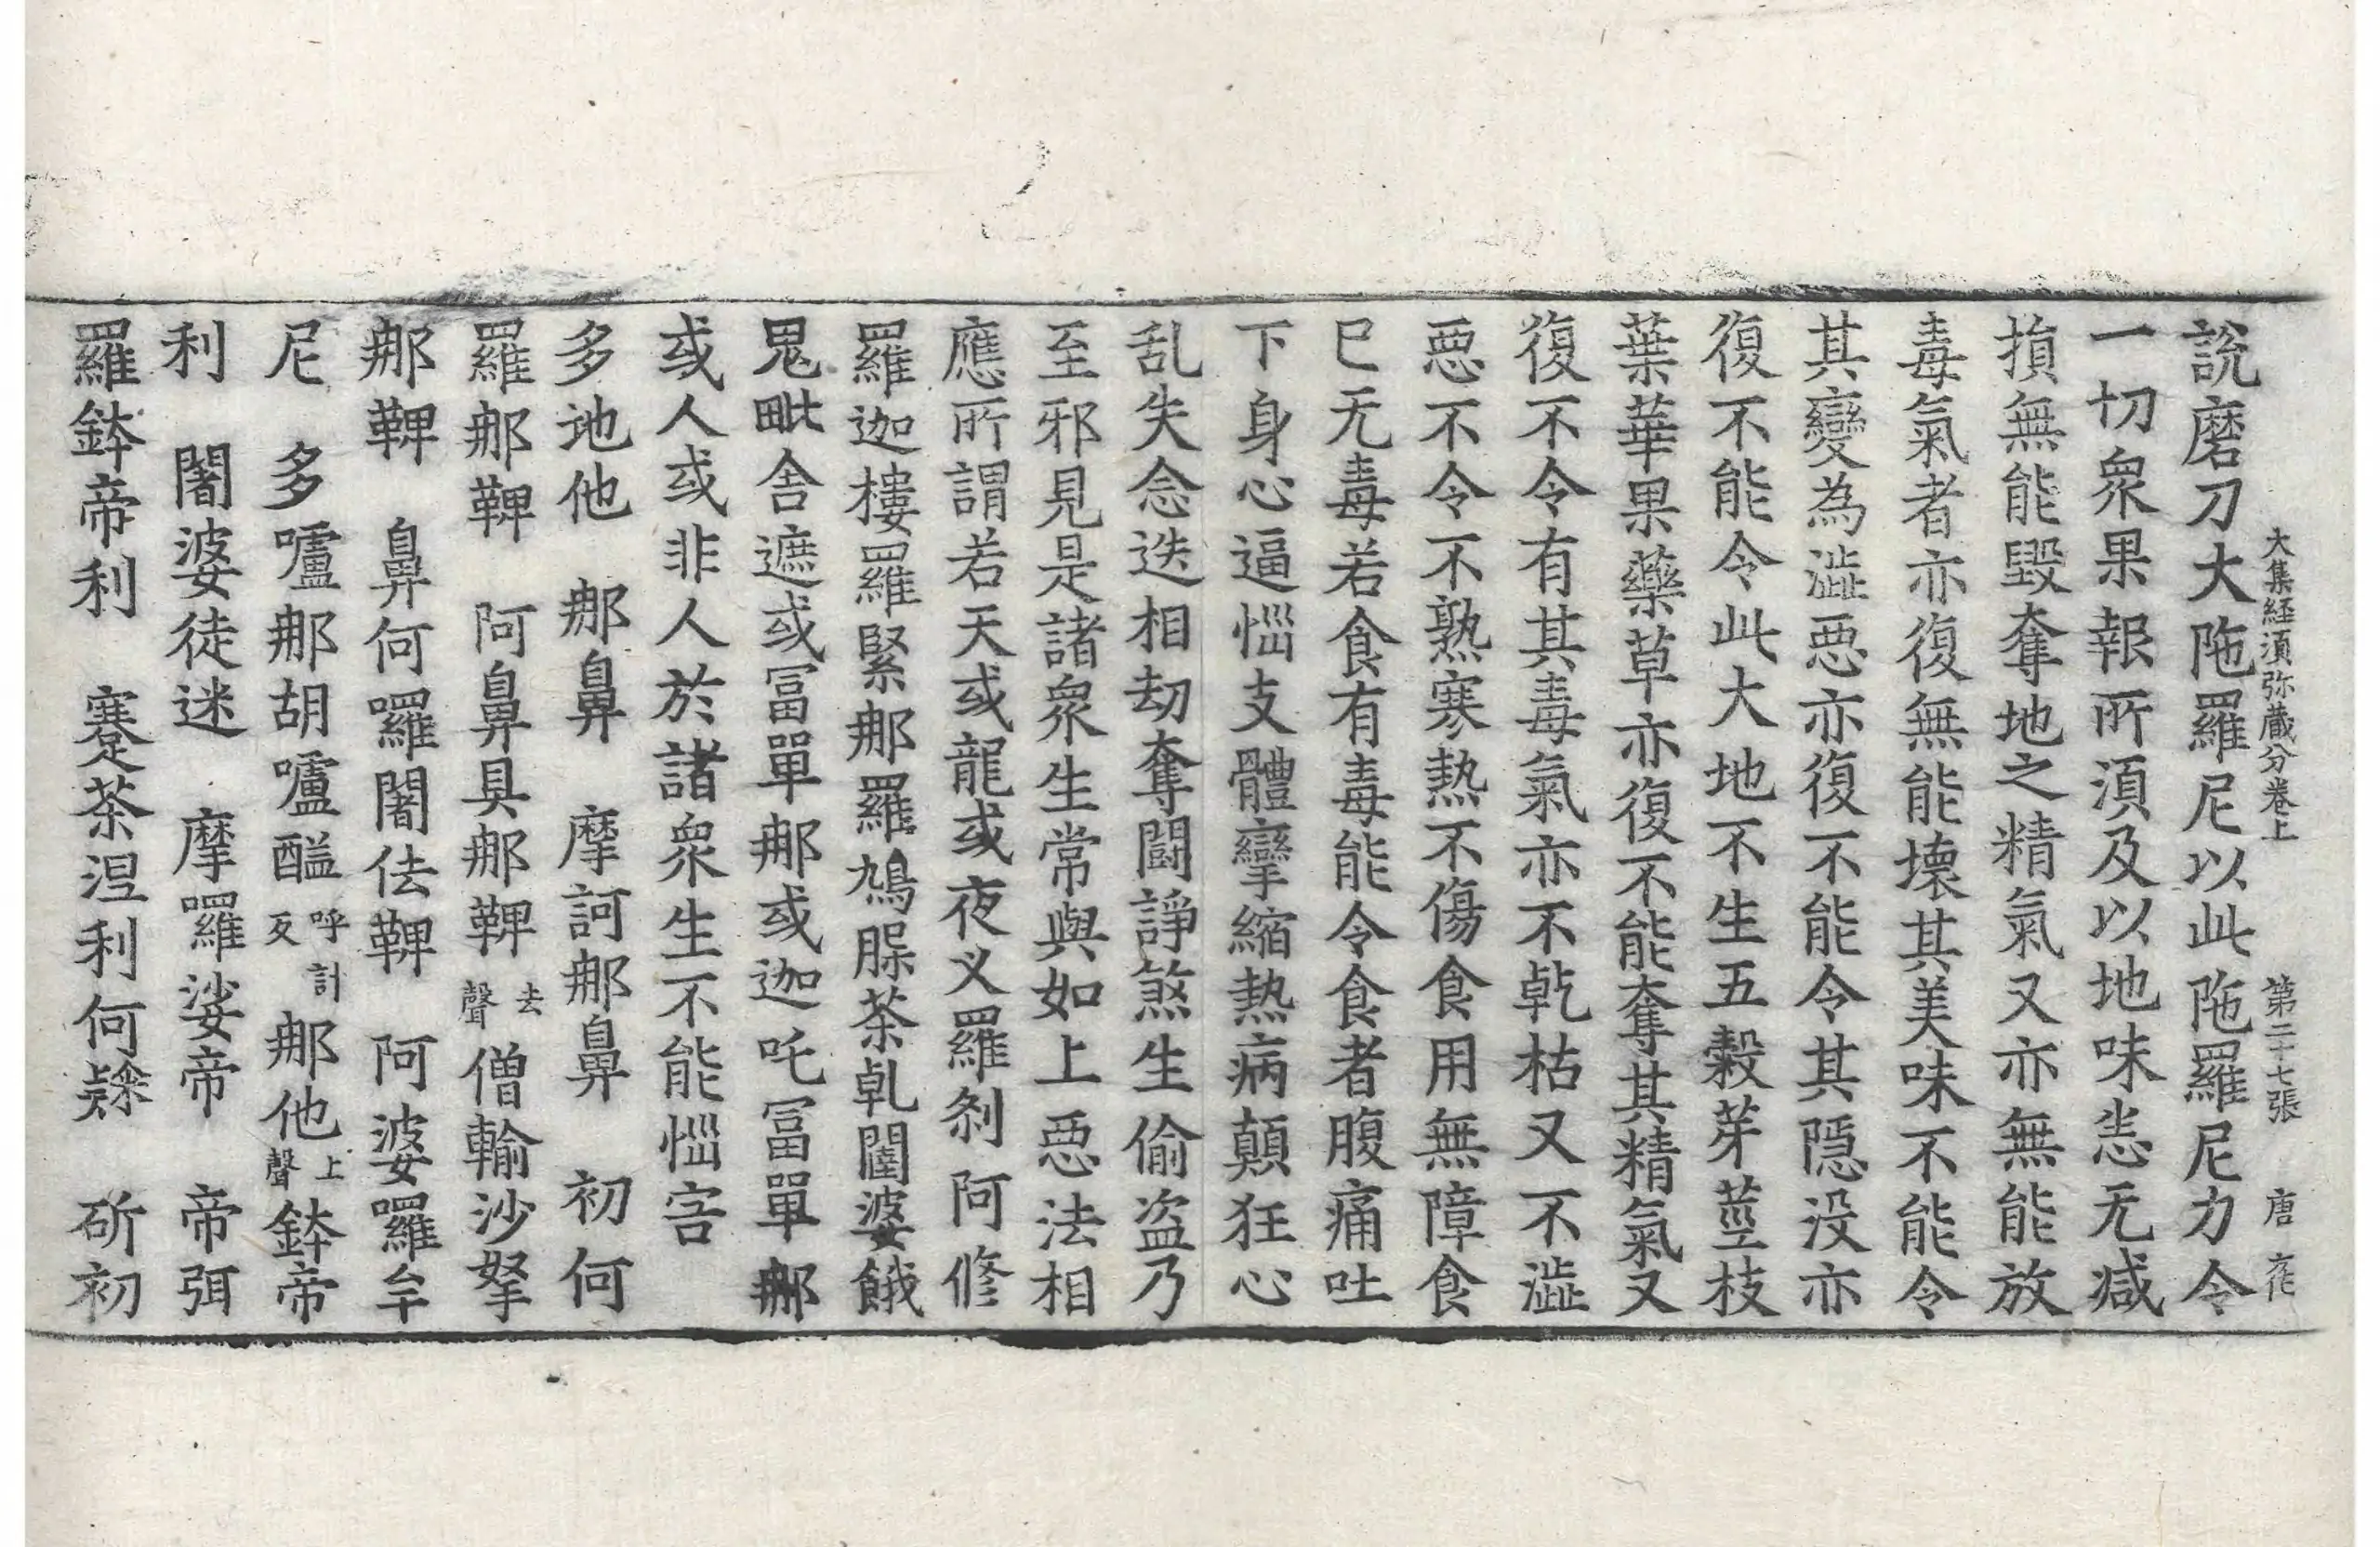 大集経須弥蔵分卷上　第二十七張　唐
說磨刀大陁羅尼以此陁羅尼力令
一切衆果報所湏及以地味恙无减
損無能毀奪地之精氣又亦無能放
毒氣者亦復無能壊其美味不能令
其變為澁惡亦復不能令其隱没亦
復不能令此大地不生五糓芽莖枝
葉華果藥草亦復不能奪其精氣又
復不令有其毒氣亦不乹枯又不澁
惡不令不熟寒熱不傷食用無障食
巳无毒若食有毒能令食者腹痛吐
下身心逼惱支體攣縮熱病顛狂心
乱失念迭相劫奪闘諍煞生偷盜乃
至邪見是諸衆生常與如上惡法相
應所謂若天或龍或夜义羅剎阿修
羅迦樓羅緊那羅鳩腬茶乹闥婆餓
鬼毗舍遮或冨單那或迦吒冨單那
或人或非人於諸衆生不能惱害
多地他　那鼻　摩訶那鼻　初何
羅那鞞　阿鼻具那鞞去聲僧輸沙拏
那鞞　鼻何囉闍佉鞞　阿婆囉牟
尼　多嚧那胡嚧醯呼計反那他上聲鉢帝
利　闍婆徒迷　摩囉娑帝　帝弭
羅鉢帝利　蹇茶涅利何　斫初